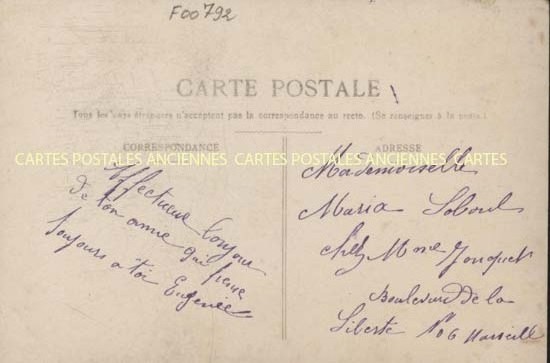 F00792
CARTE POSTALE
Tous les pays étrangers n'acceptent pas la correspondance au recto. (Se renseigner à la poste.)
CORRESPONDANCE
ADRESSE
CARTES POSTALES ANCIENNES CARTES POSTALES ANCIENNES CARTES
Affectueux bonjour
de ton amie qui pense
toujours a toi Eugénie
Mademoiselle
Maria
chez Mme Jouquet
Boulevard de la
Liberté No 6 Marseille